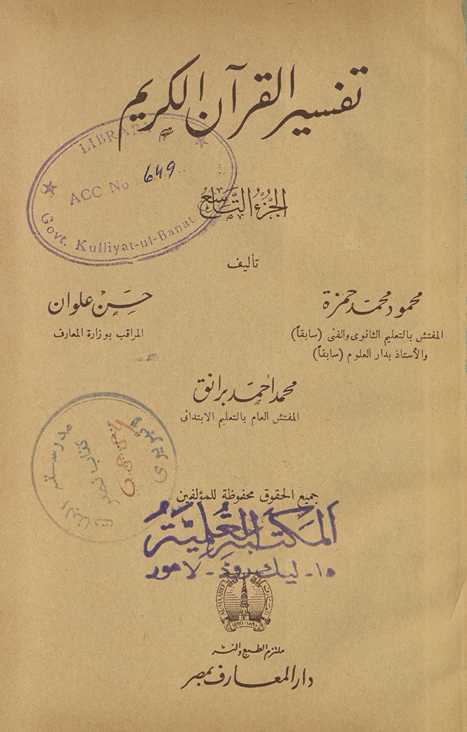 تفسير القرآن الكريم
LIBRARY
ACC No 649
Govt. Kulliyat-ul-Banat
الجزء التاسع
تأليف
محمود محمد حمزة
المفتش بالتعليم الثانوى والفنى (سابقاً)
والأستاذ بدار العلوم (سابقاً)
حسن علوان
المراقب بوزارة المعارف
محمد أحمد برانق
المفتش العام بالتعليم الابتدائى
مدرسة البنات
جميع الحقوق محفوظة للمؤلفين
المكتبة العلمية
١٥- ليك روڈ - لاهور
ملتزم الطبع والنشر
دار المعارف بمصر